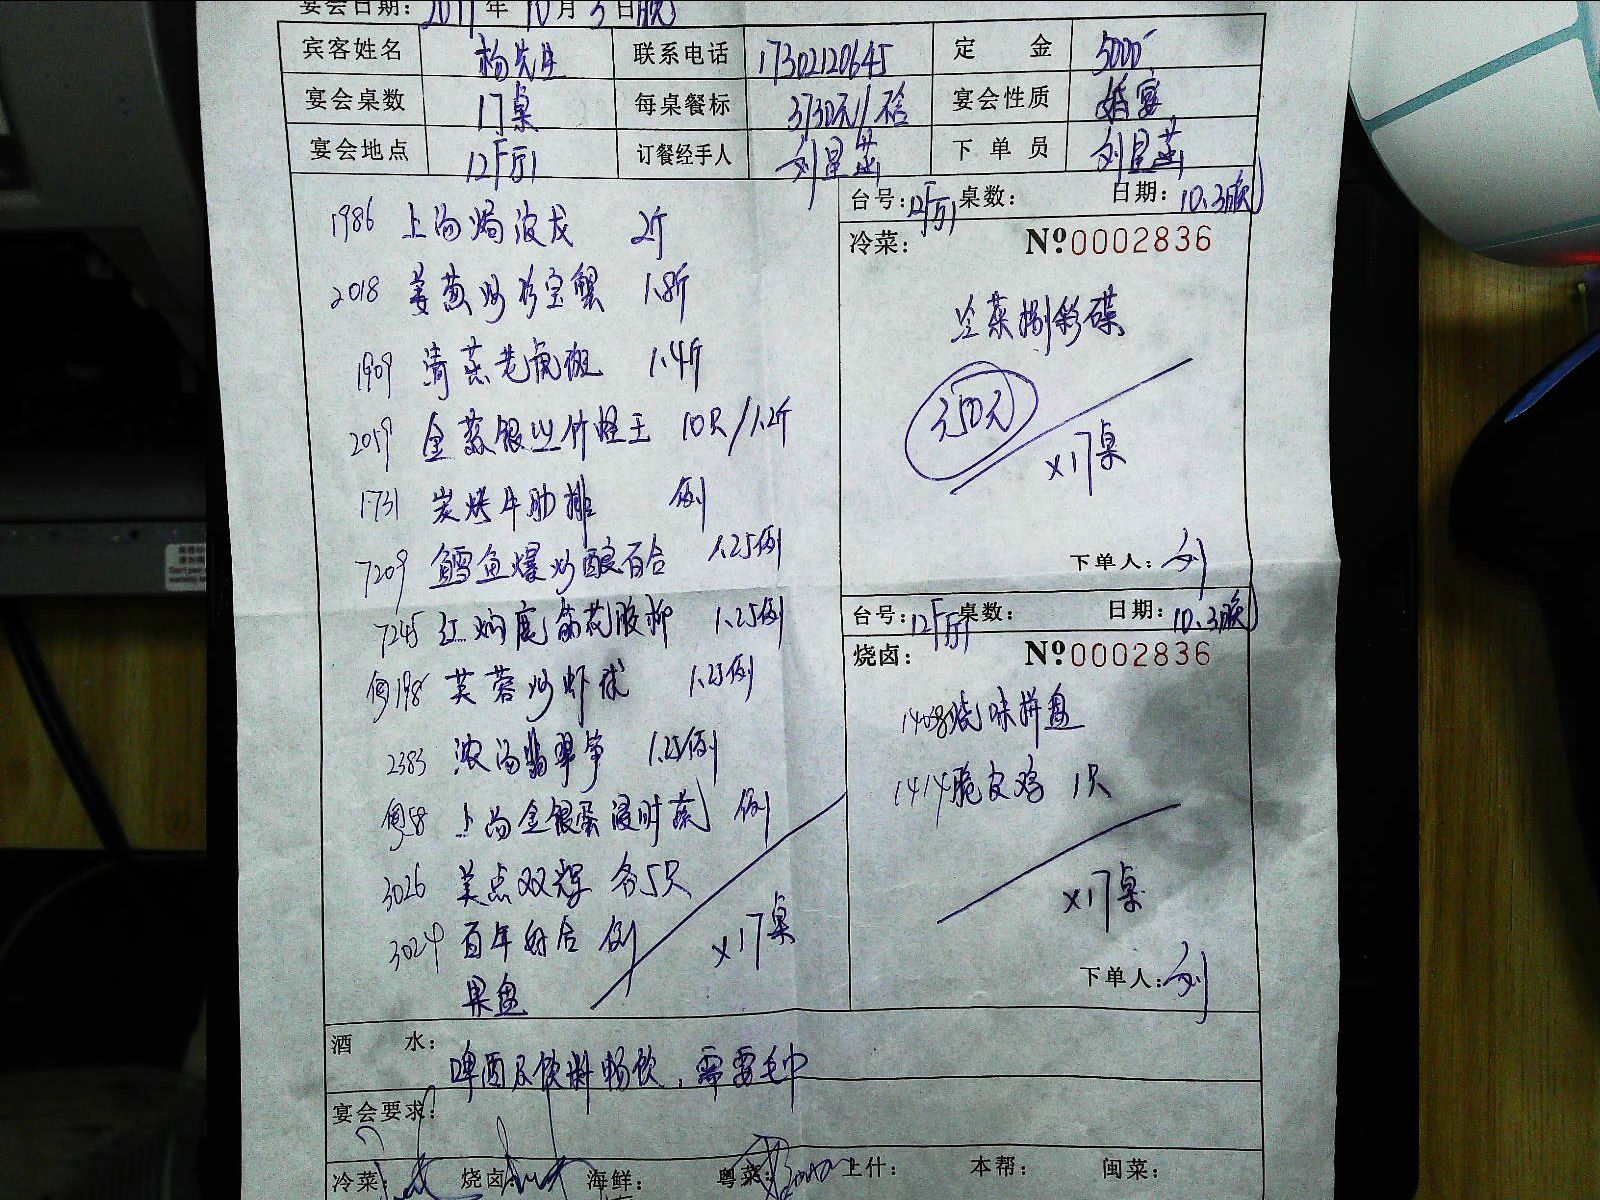 宴会日期：2017年10月3日晚
宾客姓名 杨先生 联系电话 17302120645 定金 5000
宴会桌数 17桌 每桌餐标 3730元/ 宴会性质 婚宴
宴会地点 12F厅 订餐经手人 刘 下单员 刘
台号：12F厅 桌数： 日期：10.3晚
冷菜： Nº0002836
冷菜捌彩碟
350元
×17桌
下单人：刘
1986 上汤焗波龙 2斤
2018 姜葱炒珍宝蟹 1.8斤
1909 清蒸老虎斑 1.4斤
2059 金蒜银丝竹蛏王 10只/1.2斤
1731 炭烤牛肋排 例
7209 鳕鱼爆炒酿百合 1.25例
7245 红焖鹿筋花胶柳 1.25例
粤198 芙蓉炒虾球 1.25例
2383 浓汤翡翠笋 1.25例
粤58 上汤金银蛋浸时蔬 例
3026 美点双辉 各5只
3024 百年好合 例
果盘
×17桌
台号：12F厅 桌数： 日期：10.3晚
烧卤： Nº0002836
1408烧味拼盘
1414脆皮鸡 1只
×17桌
下单人：刘
酒水：
啤酒及饮料畅饮，需要毛巾
宴会要求：
冷菜： 烧卤： 海鲜： 粤菜： 上什： 本帮： 闽菜：